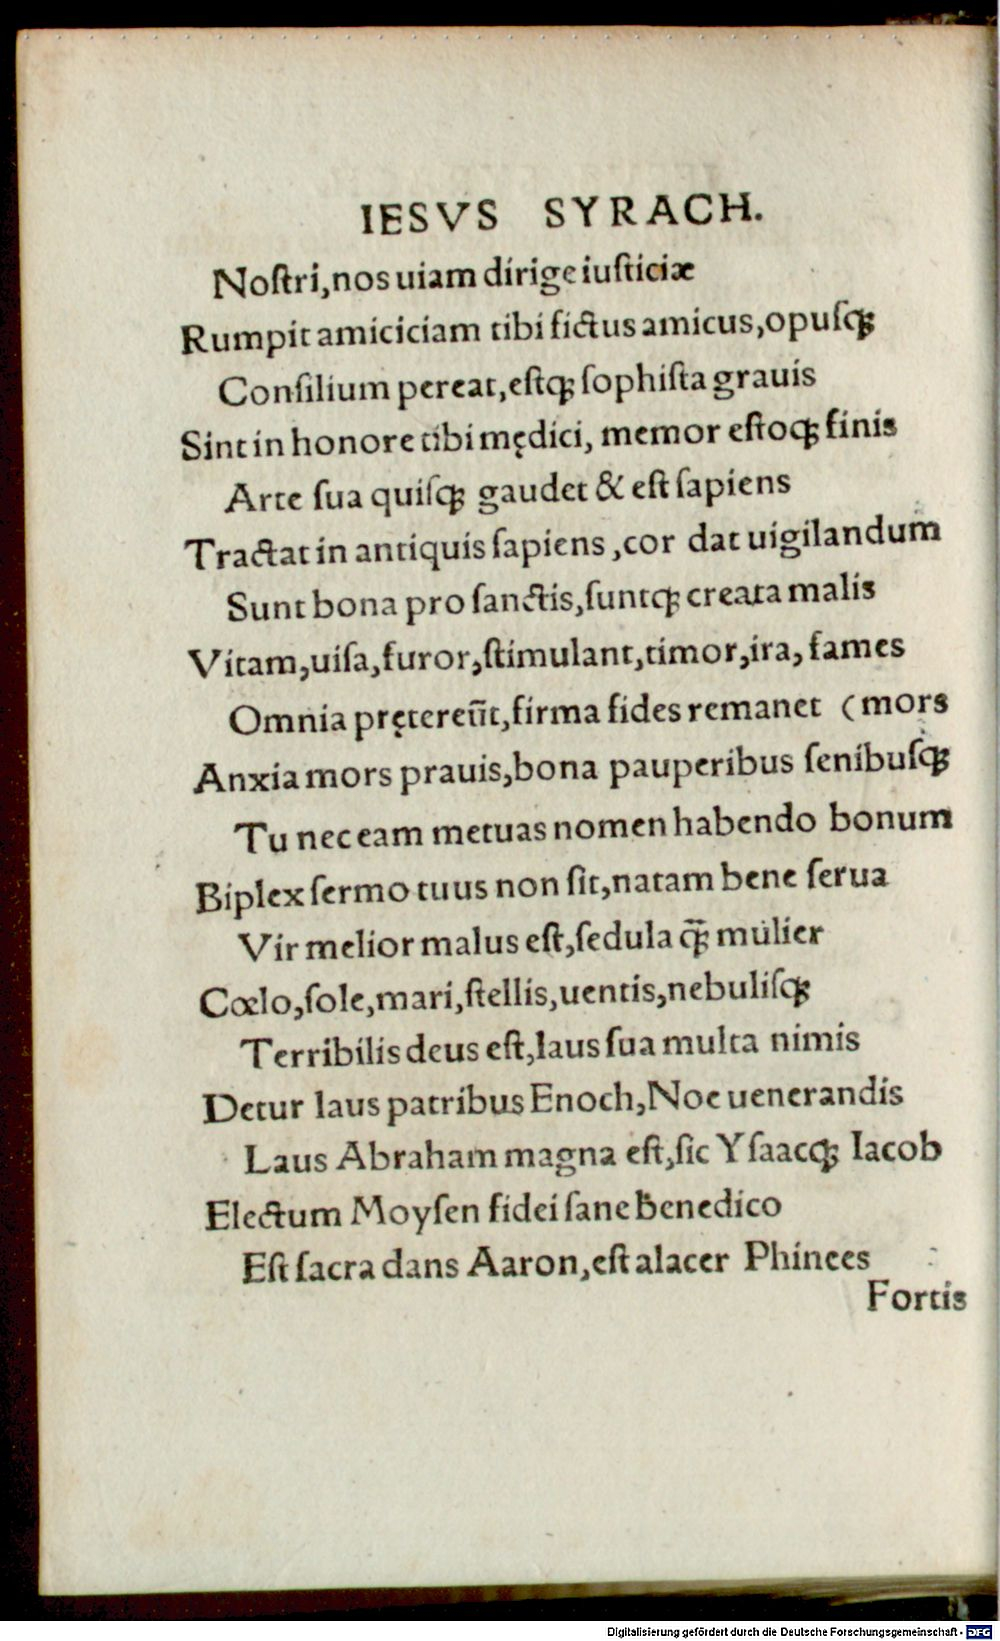 IESVS SYRACH.
Noſtri,nos uiam dirige iuſticiæ
Rumpit amiciciam tibi fictus amicus,opuſqꝫ
Conſilium pereat,eſtqꝫ ſophiſta grauis
Sint in honore tibi mędici, memor eſtoqꝫ finis
Arte ſua quiſqꝫ gaudet & eſt ſapiens
Tractat in antiquis ſapiens ,cor dat uigilandum
Sunt bona pro ſanctis,ſuntqꝫ creata malis
Vitam,uiſa,furor,ſtimulant,timor,ira, fames
Omnia prętereūt,firma fides remanet (mors
Anxia mors prauis,bona pauperibus ſenibuſqꝫ
Tu nec eam metuas nomen habendo bonum
Biplex ſermo tuus non ſit,natam bene ſerua
Vir melior malus eſt,ſedula q̄ꝫ mulier
Cœlo,ſole,mari,ſtellis,uentis,nebuliſqꝫ
Terribilis deus eſt,laus ſua multa nimis
Detur laus patribus Enoch,Noe uenerandis
Laus Abraham magna eſt,ſic Yſaacqꝫ Iacob
Electum Moyſen fidei ſane benedico
Eſt ſacra dans Aaron,eſt alacer Phinees
Fortis
Digitalisierung gefördert durch die Deutsche Forschungsgemeinschaft - DFG